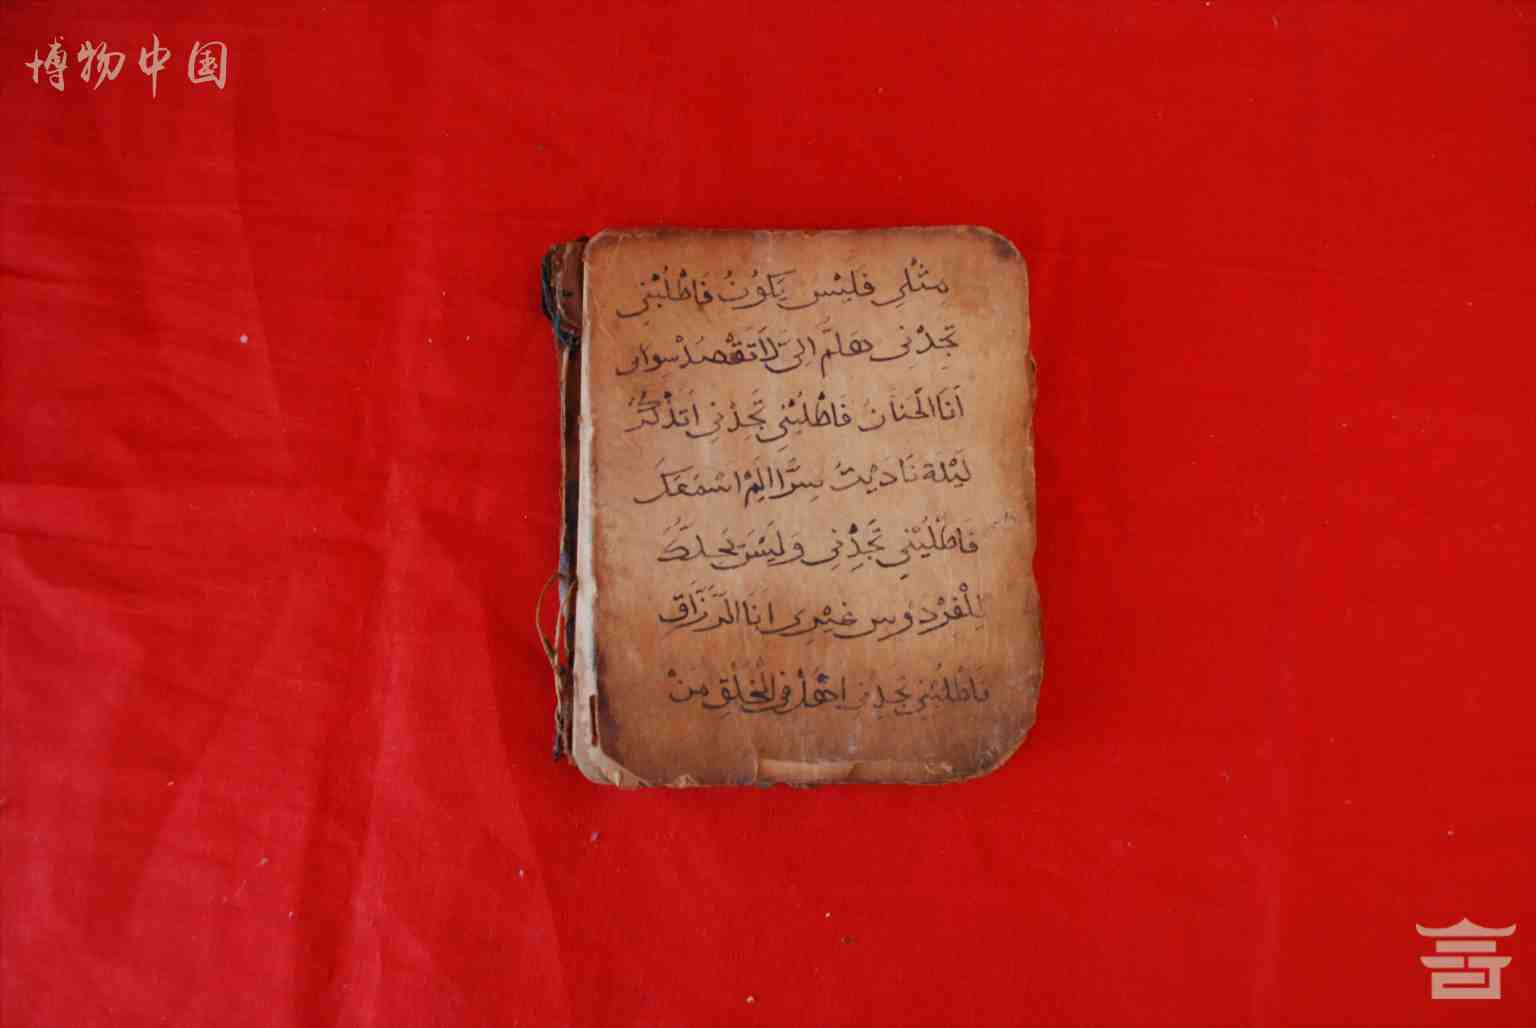 博物中国
مِثْلِي فَلَيْسَ يَكُوْنُ فَاطْلُبْنِي
تَجِدْنِي هَلُمَّ اِلَيَّ لَا تَقْصُدْ سِوَاي
اَنَا الْحَنَانُ فَاطْلُبْنِي تَجِدْنِي اَتَذْكُرُ
لَيْلَةَ نَادَيْتَ سِرًّا اَلَمْ اَسْمَعَكَ
فَاطْلُبْنِي تَجِدْنِي وَلَيْسَ يَحِلُّكَ
لِلْفِرْدَوْسِ غَيْرِى اَنَا الرَّزَّاقُ
فَاطْلُبْنِي تَجِدْنِي اَهْلُ فِي الْخَلْقِ مَنْ